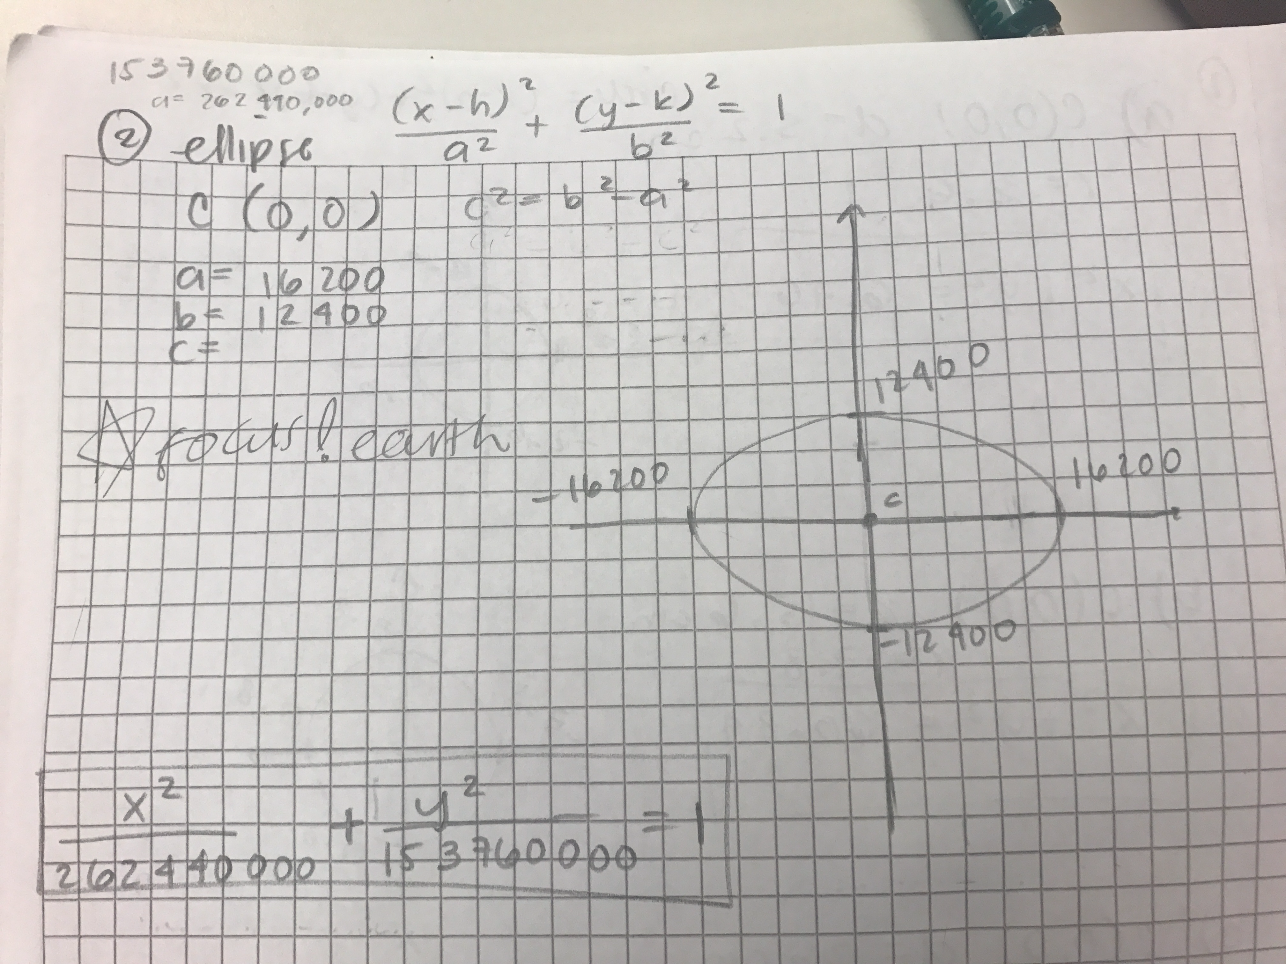 153760000
a= 262440,000
② ellipse (x-h)²/a² + (y-k)²/b² = 1
C (0,0) c² = b² - a²
a= 16 200
b= 12 400
c=
focus! earth
12400
-16200
16200
c
-12400
x²/262440000 + y²/153760000 = 1